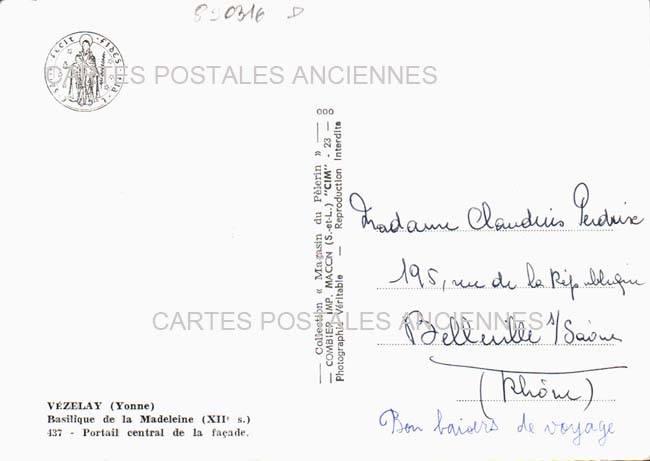 890316 D
CARTES POSTALES ANCIENNES
ooo
— Collection « Magasin du Pèlerin » —
— COMBIER IMP. MACON (S.-et-L.) "CIM" - 23 —
Photographie Véritable — Reproduction Interdite
Madame Claudius Perdrix
195, rue de la République
CARTES POSTALES ANCIENNES
Belleville s/Saône
(Rhône)
Bon baisers de voyage
VÉZELAY (Yonne)
Basilique de la Madeleine (XIIe s.)
437 - Portail central de la façade.